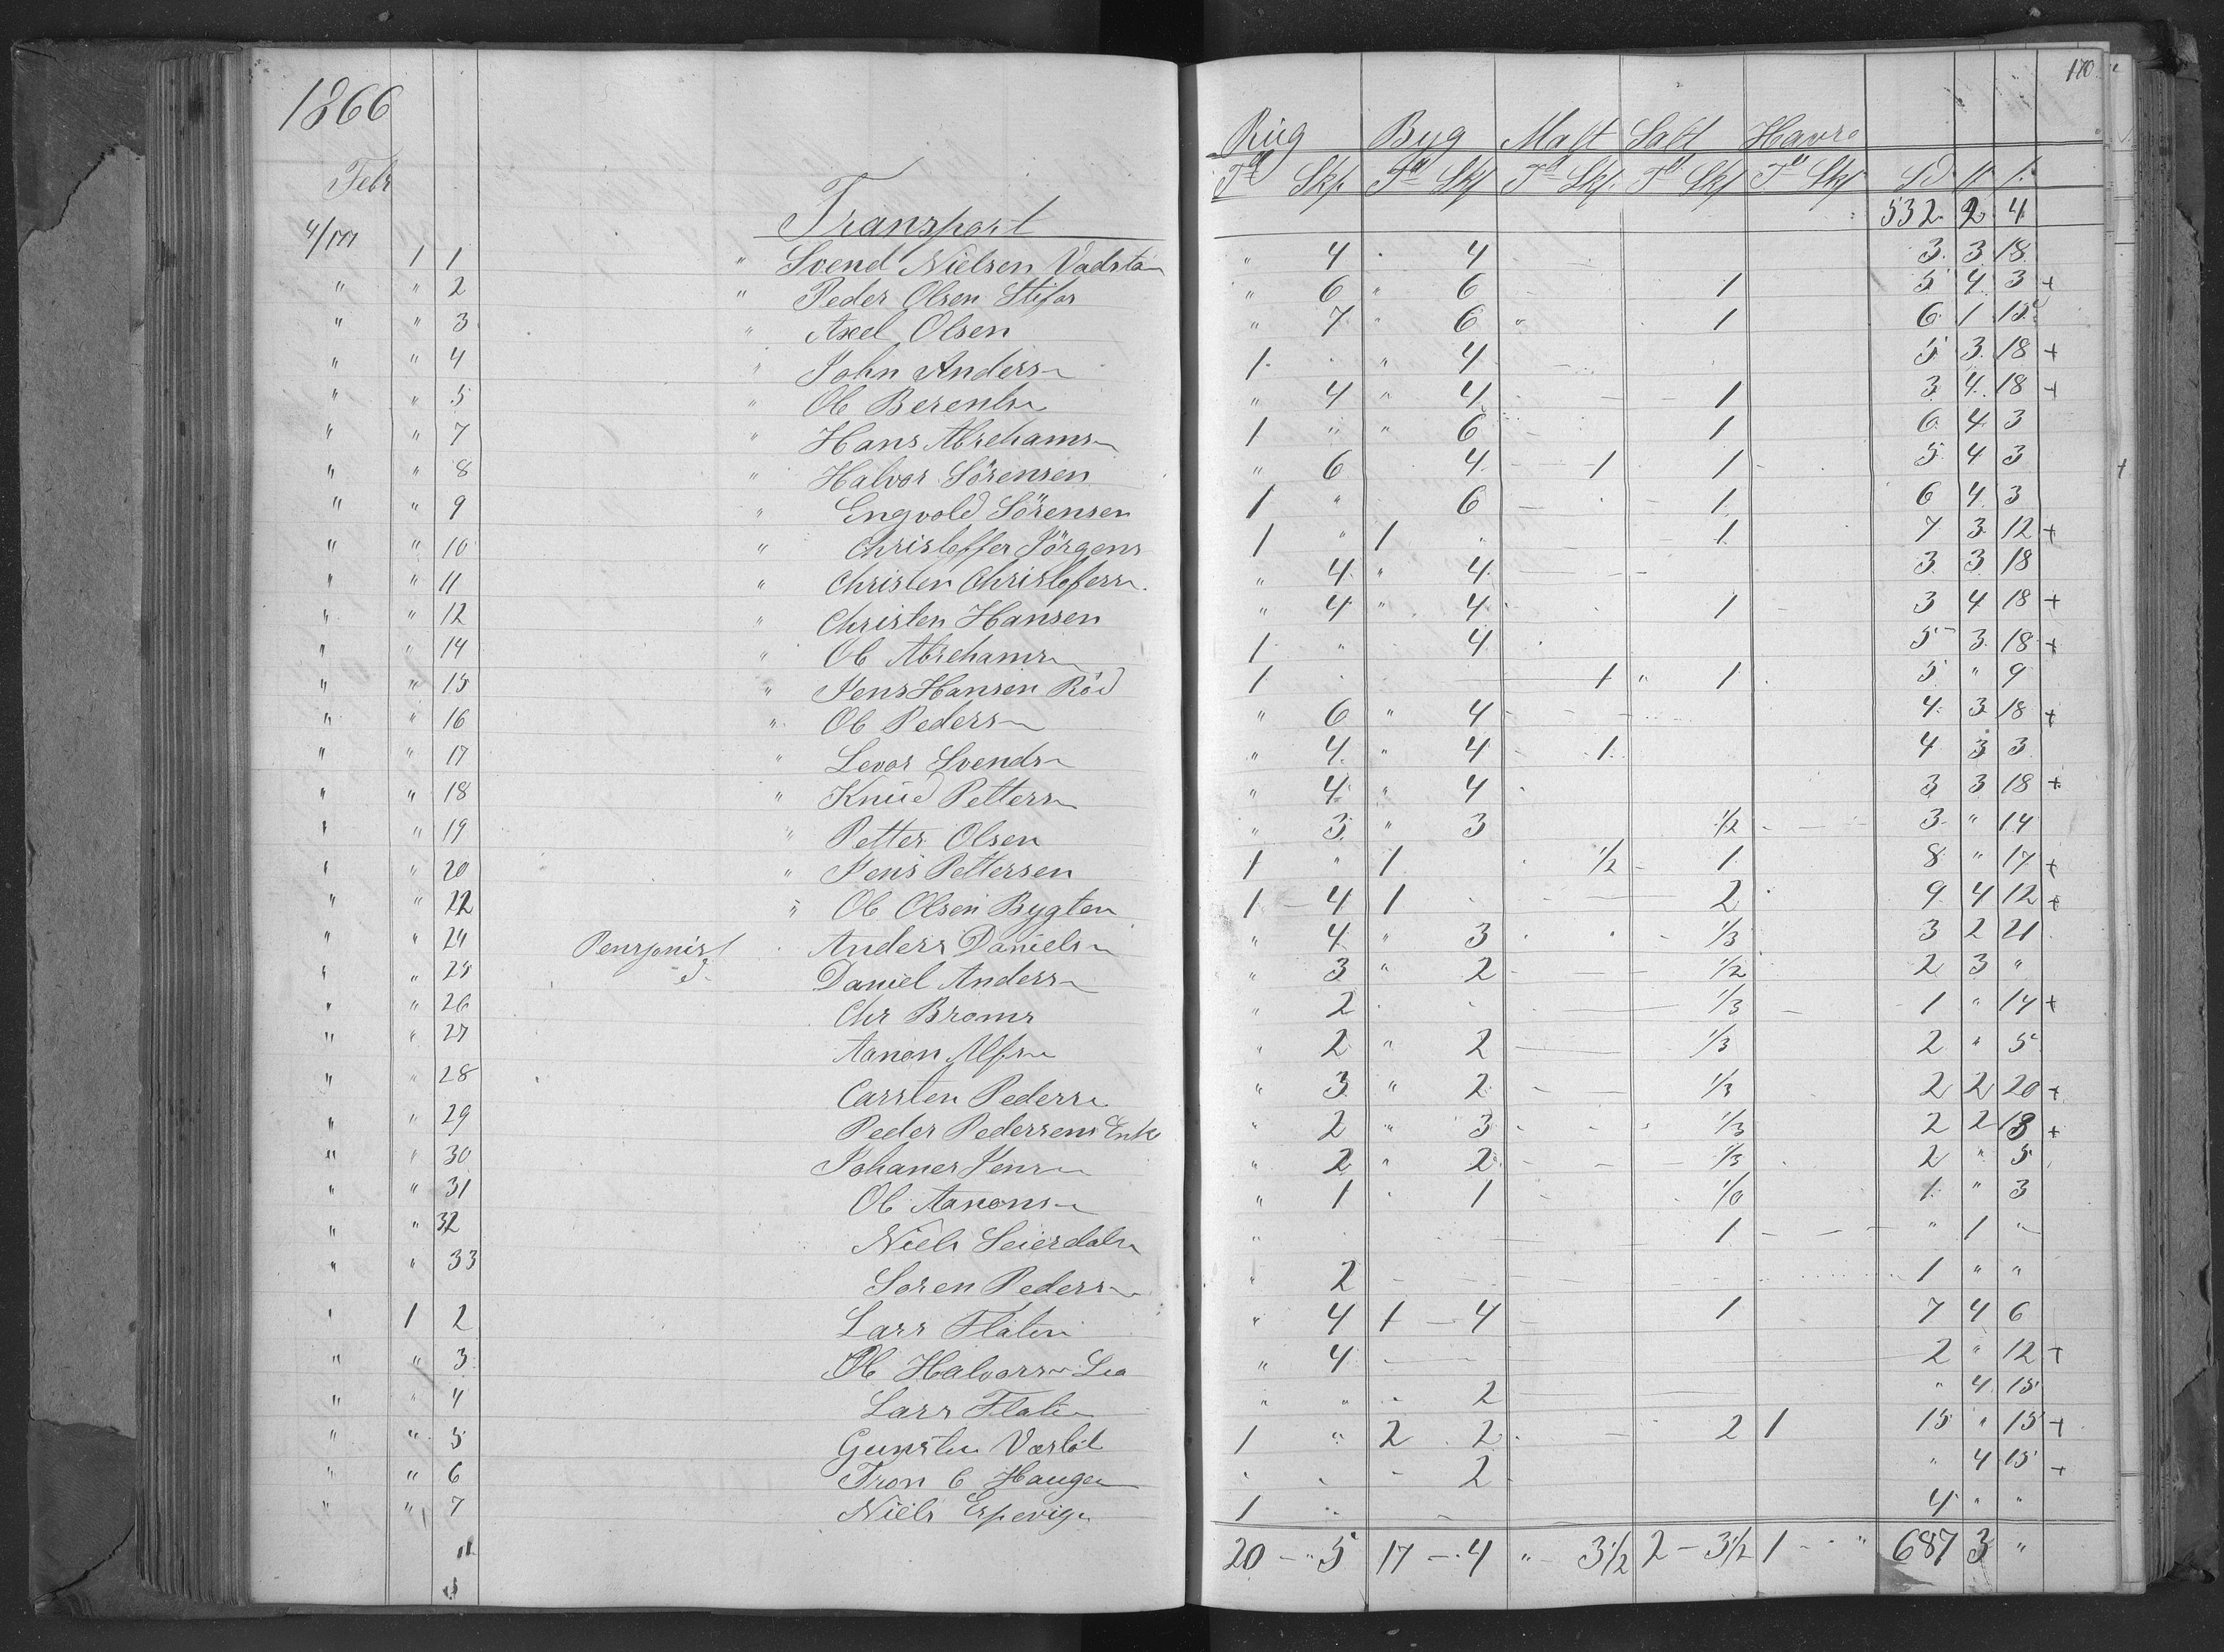 1866
170
Rug Byg Malt Salt Havre
Febr Td Skp. Td Skp Td Skp. Td Skp Td Skp Sd
Transport 532 2 4
4/177 1 1 " Svend Nielsen Vadsta " 4 " 4 3 3 18
" " 2 " Peder Olsen Stifar " 6 " 6 1 5 4 3 +
" " 3 " Axel Olsen " 7 " 6 " 1 6 1 15
" " 4 " John Anders 1 " 4 5 3 18 +
" " 5 " Ole Berents " 4 " 4 1 3 4 18 +
" " 7 " Hans Abrehams 1 " " 6 1 6 4 3
" " 8 " Halvor Sörensen " 6 4 1 1 5 4 3
" " 9 " Engvold Sörensen 1 " 6 1 6 4 3
" " 10 " Christoffer Jörgens 1 " 1 1 7 3 12 +
" " 11 " Christen Christofers " 4 " 4 3 3 18
" " 12 " Christen Hansen " 4 " 4 1 3 4 18 +
" " 14 " Ole Abrehams 1 " 4 5 3 18 +
" " 15 " Jens Hansen Röd 1 1 " 1 5 " 9
" " 16 " Ole Peders " 6 " 4 4 3 18 +
" " 17 " Levor Svends " 4 " 4 1 4 3 3
" " 18 " Knud Petters " 4 " 4 3 3 18 +
" " 19 " Petter Olsen " 3 " 3 1/2 3 " 14
" " 20 " Jens Pettersen 1 " 1 1/2 1 8 " 17 +
" " 22 " Ole Olsen Bygten 1 4 1 2 9 4 12 +
" " 24 Pensjonist Anders Daniels " 4 " 3 1/3 3 2 21
" " 25 d Daniel Anders " 3 " 2 1/2 2 3 "
" " 26 Chr Broms " 2 1/3 1 " 14 +
" " 27 Aanon Alfs " 2 " 2 1/3 2 " 5
" " 28 Carsten Peders " 3 " 2 1/3 2 2 20 +
" " 29 Peder Pedersens Enk " 2 " 3 1/3 2 2 18 +
" " 30 Johanes Jens " 2 " 2 1/3 2 " 5
" " 31 Ole Aanons " 1 1 1/6 1 " 3
" " 32 Niels Seierdals " 1 " 1 "
" " 33 Soren Peders " 2 1 " "
" 1 2 Lars Flaten " 4 1 4 1 7 4 6
" " 3 Ole Halvors Lia " 4 2 " 12 +
" " 4 Lars Flate " " 2 " 4 15
" " 5 Gunsten Værlöt 1 " 2 2 2 1 15 " 15 +
" " 6 Tron C Haugen 2 " 4 15 +
" " 7 Niels Espevig 1 4 " "
20 - " 5 17 - 4 " 3 1/2 2 - 3 1/2 1 - " 687 3 "